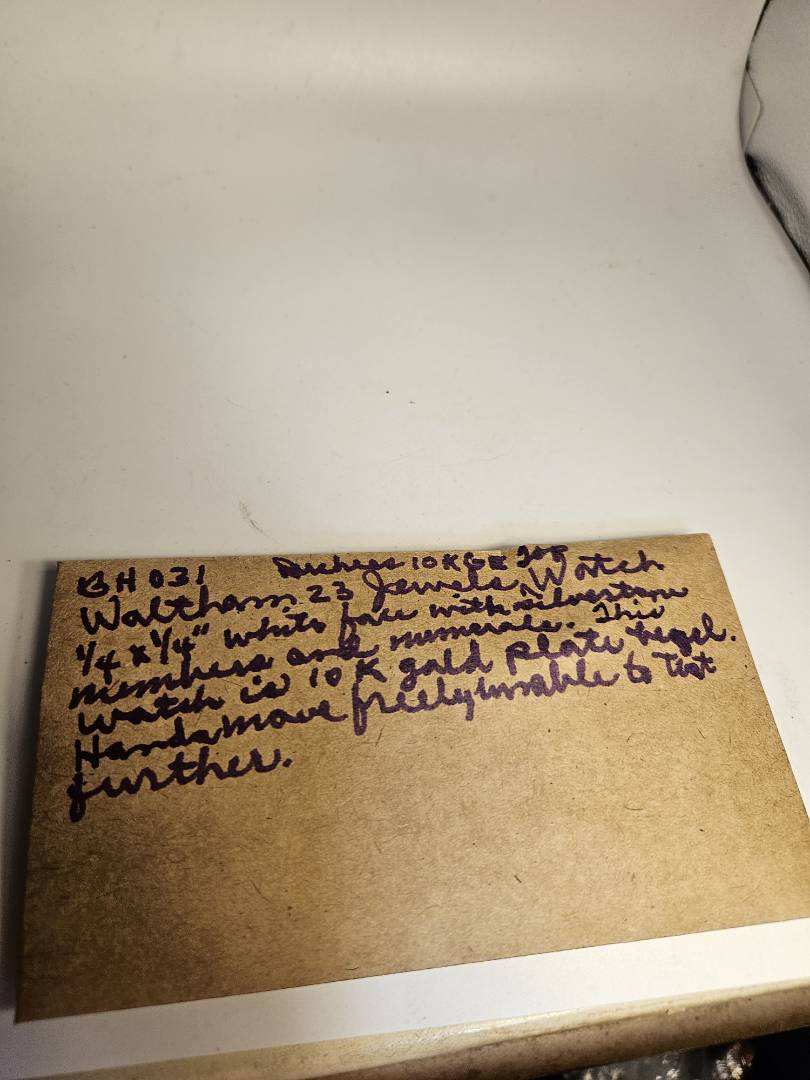 BH 031 Duchess 10K GE 20S
Waltham 23 Jewels Watch
1/4 x 1/4" white face with silvertone
numbers and numerals. This
Watch is 10 K gold plate bezel.
Hands move freely unable to test
further.